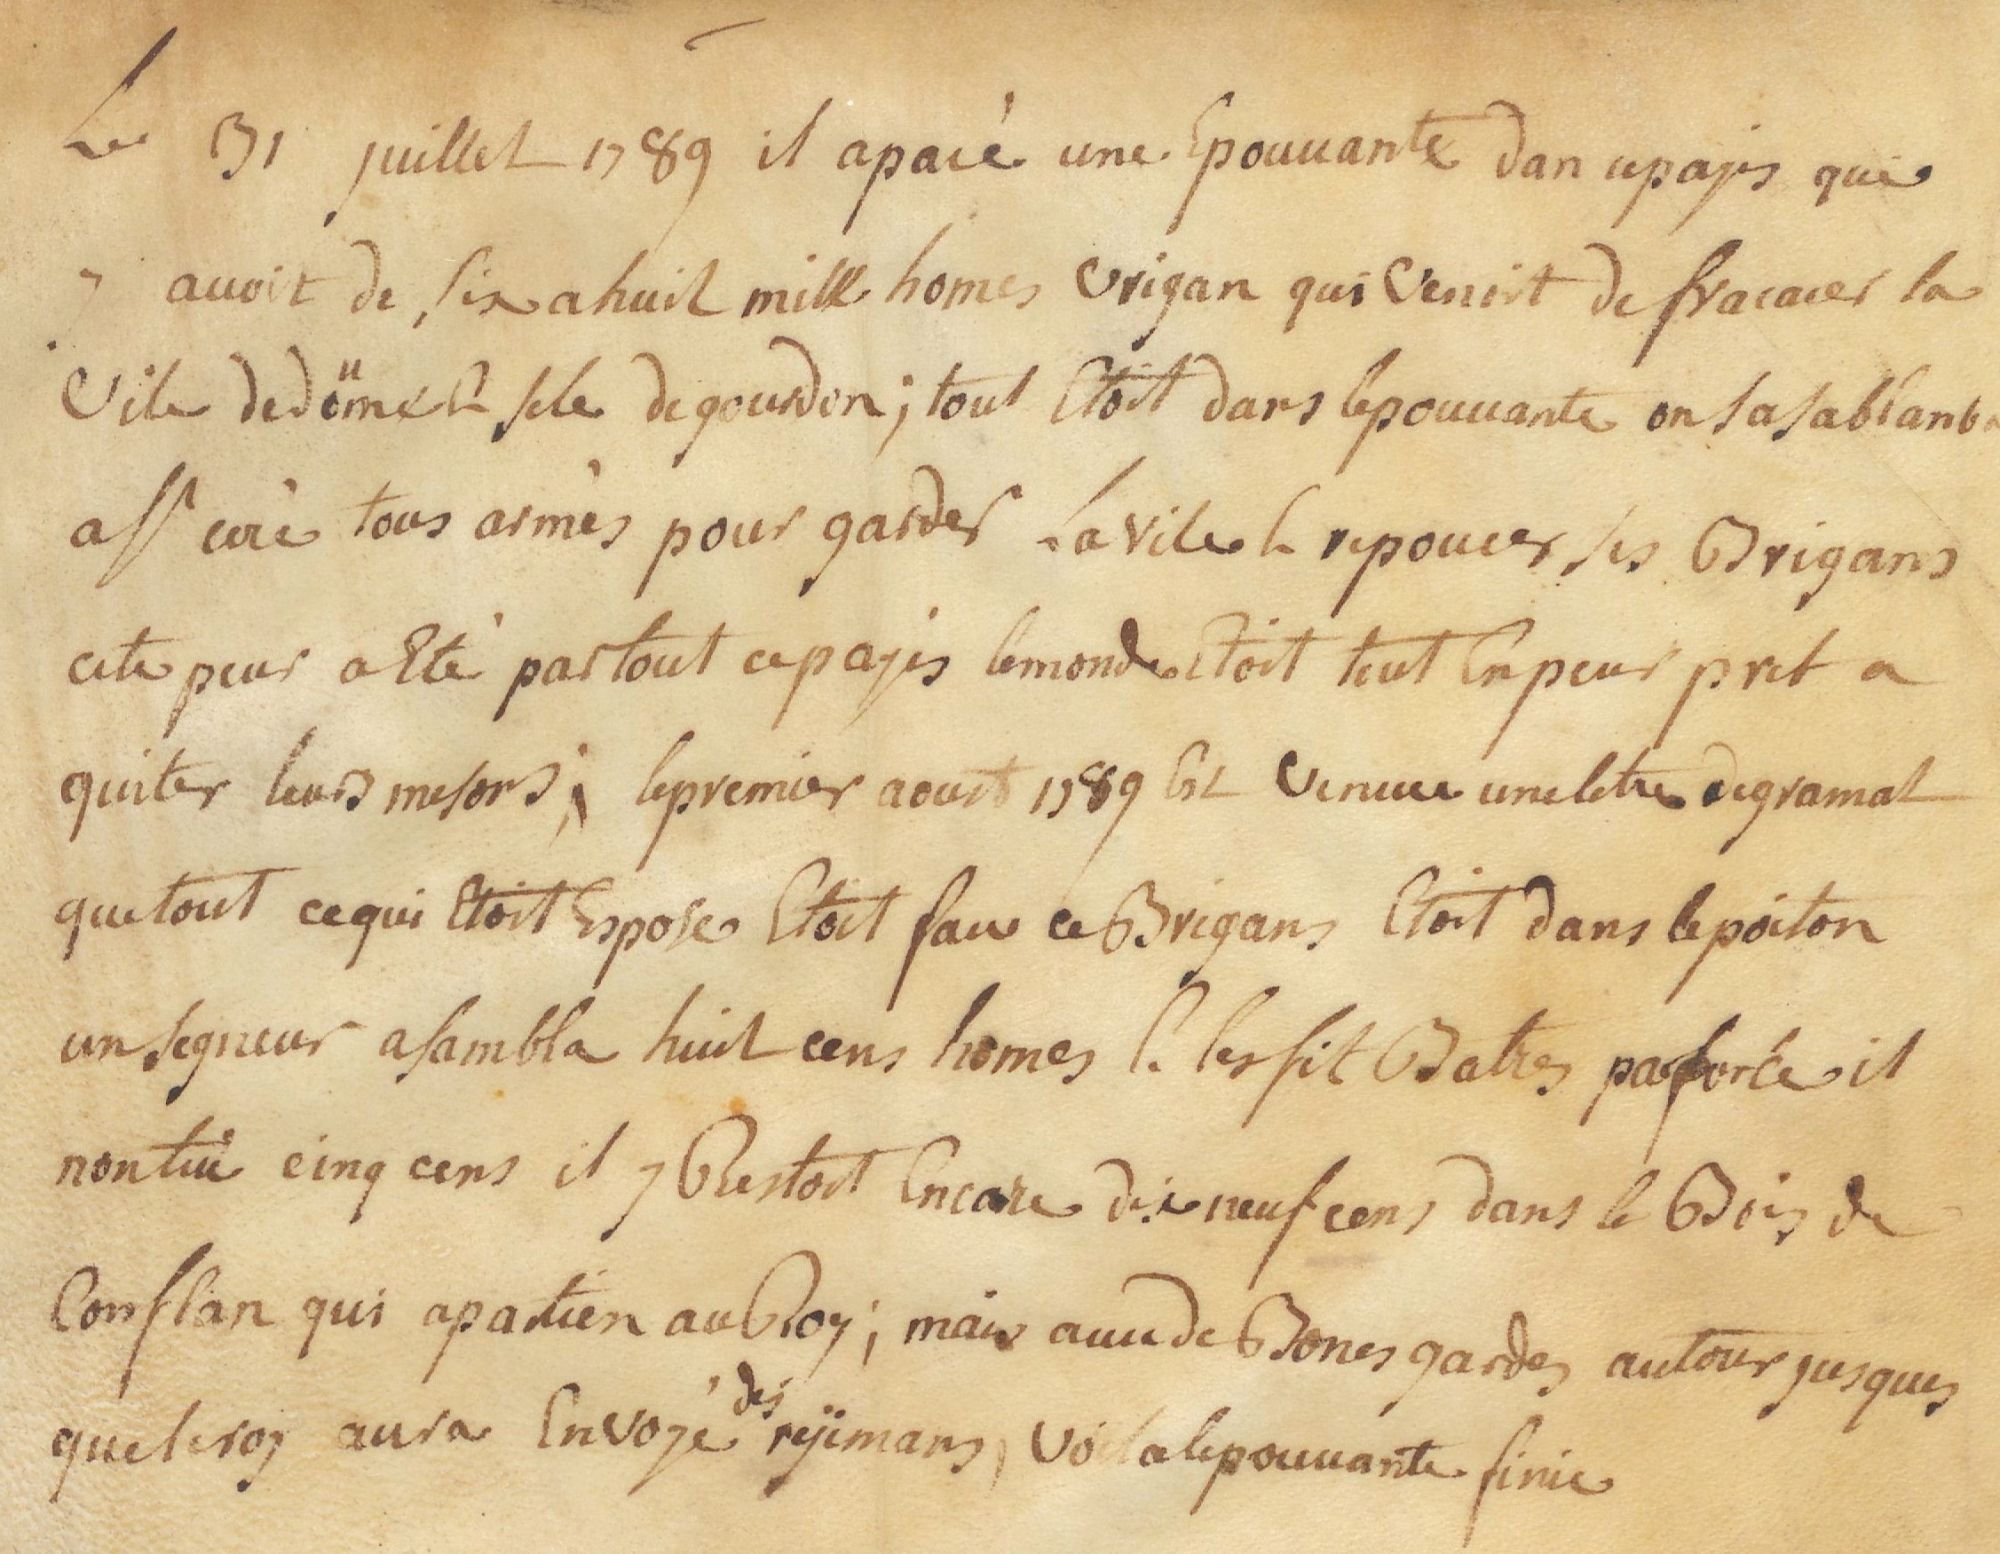 Le 31 juillet 1789 il apacé une Epouuante dan cepayis que
y auoit de six a huit mille homes Vrigan qui Venoit de fracacer la
Vile dedöme & sele degourdon; tout Etoit dans lepouuante on sasablant
assi cuiré tous armés pour garder La Vile & repoucer ses Brigans
cete peur a Eté partout cepayis lemonde Etoit tout Enpeur pret a
quiter leurs mesons; lepremier aoust 1789 Est Venuue uneletre degramat
quetout cequi Etoit Espose Etoit faux ce Brigans Etoit dans lepoiton
un segneur asambla huit cens homes & les fit Batres par force il
nontué cinq cens il y Restoit Encore dix neuf cens dans le Bois de
Conflan qui apartien au Roy; mais auude Bones gardes autour jusques
queleroy aura Envoyé des rejimans, Voilalepouuante finie